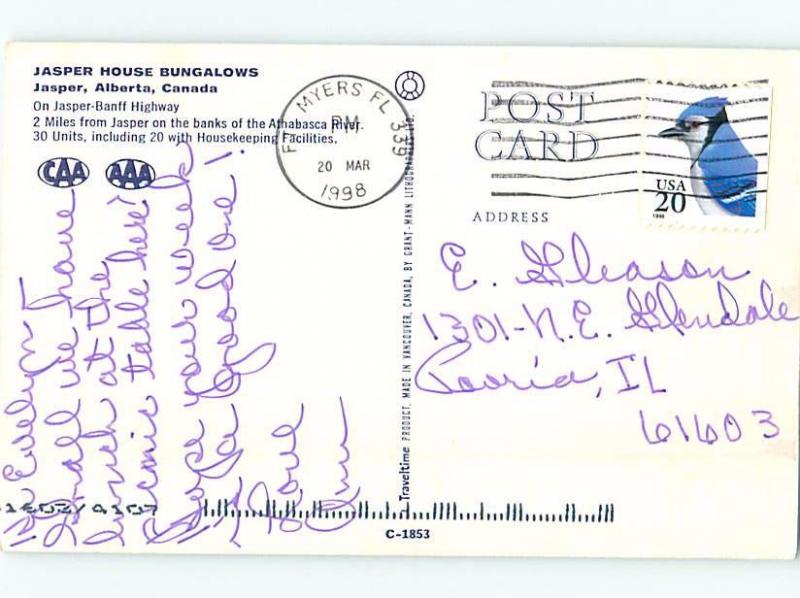 JASPER HOUSE BUNGALOWS
Jasper, Alberta, Canada
On Jasper-Banff Highway
2 Miles from Jasper on the banks of the Athabasca River.
30 Units, including 20 with Housekeeping Facilities.
CAA AAA
FT MYERS FL 339
PM
20 MAR
1998
POST
CARD
USA
20
1996
ADDRESS
E. Gleason
1301-N.E. Glendale
Peoria, IL
61603
Hi Evelyn
Shall we have
lunch at the
picnic table here?
Hope your week
is a good one!
Love
Ann
A Traveltime PRODUCT, MADE IN VANCOUVER, CANADA, BY GRANT-MANN LITHOGRAPHERS LTD.
C-1853